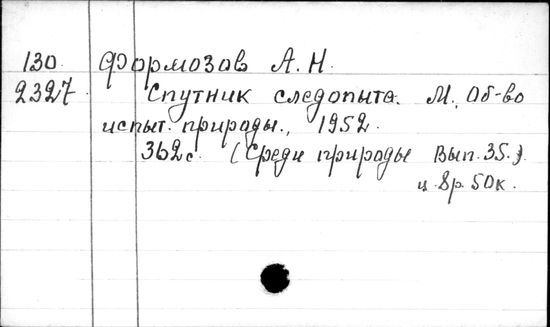 130 Формозов А. Н.
2327 Спутник следопыта. М., Об-во
испыт. природы., 1952.
362 с. (Среди природы Вып. 35.).
ц. 8р. 50к.